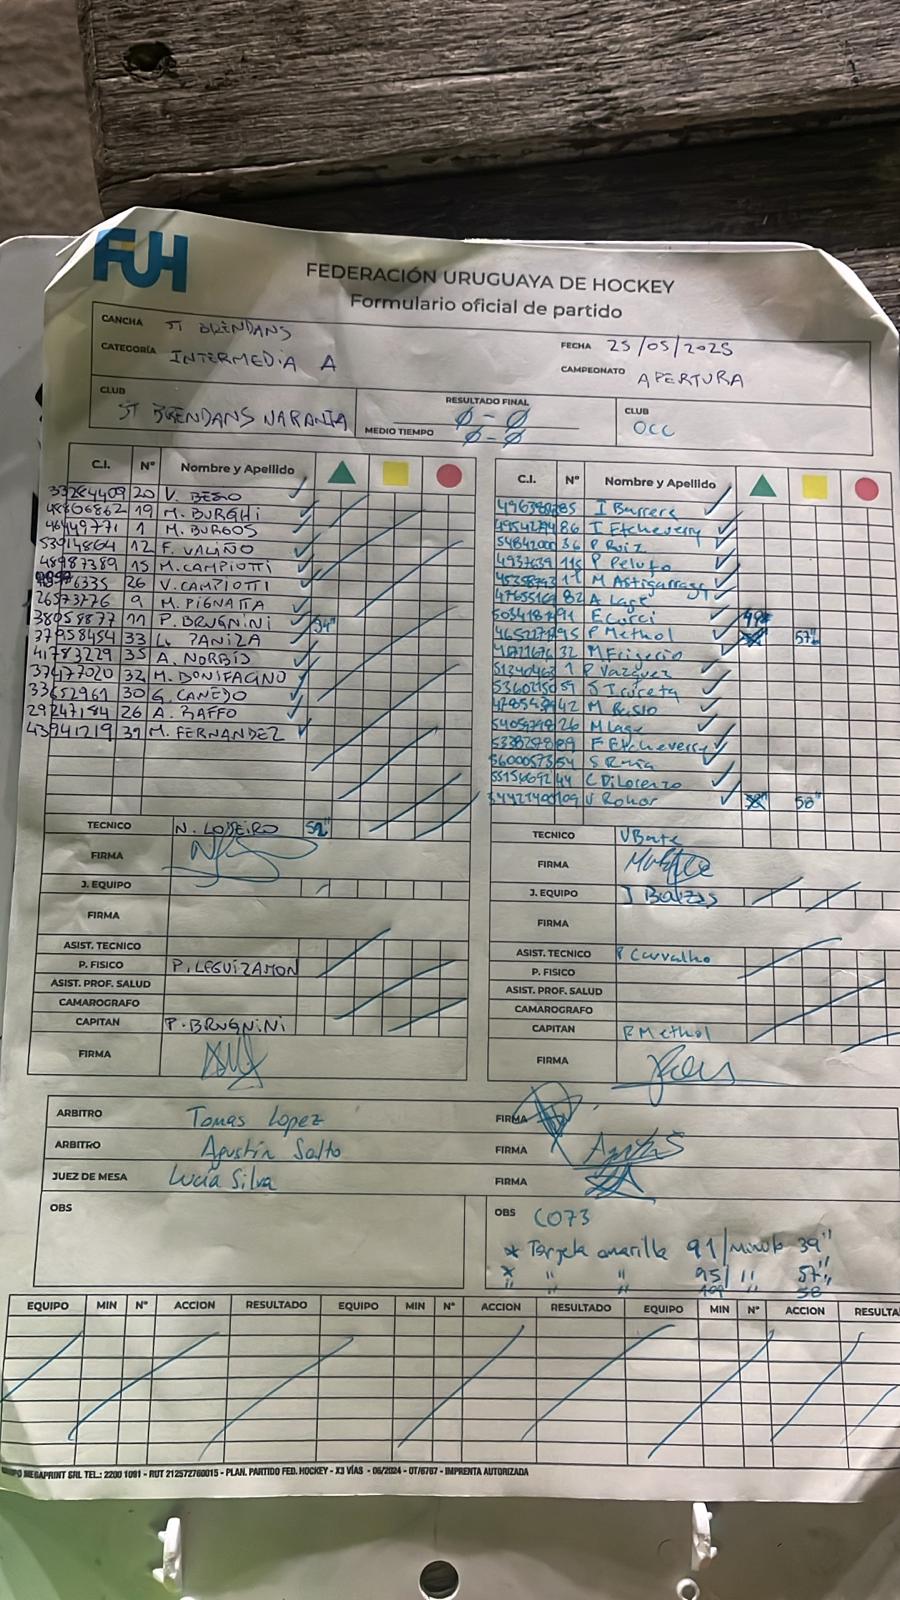 FUH
FEDERACIÓN URUGUAYA DE HOCKEY
Formulario oficial de partido
CANCHA ST BRENDANS
CATEGORÍA INTERMEDIA A
FECHA 25/05/2025
CAMPEONATO APERTURA
CLUB ST BRENDANS NARANJA
RESULTADO FINAL 0-0
MEDIO TIEMPO 0-0
CLUB OCC
C.I. Nº Nombre y Apellido
20 V. BESIO
19 M. BURGHI
1 M. BURGOS
12 F. VALIÑO
48987389 15 M. CAMPIOTTI
26 V. CAMPIOTTI
26573776 9 M. PIGNATTA
38058877 11 P. BRUGNINI 34"
37958454 33 L. PANIZA
41783229 35 A. NORBIS
37477020 32 M. BONIFACINO
33652961 30 G. CANEDO
29247184 26 A. RAFFO
43941219 31 M. FERNANDEZ
TECNICO N. LOJEIRO 52"
FIRMA
J. EQUIPO
FIRMA
ASIST. TECNICO
P. FISICO P. LEGUIZAMON
ASIST. PROF. SALUD
CAMAROGRAFO
CAPITAN P. BRUGNINI
FIRMA
C.I. Nº Nombre y Apellido
85 I Barrera
86 I Etcheverry
36 P Ruiz
P Pelufo
M Astigarraga
82 A Lage
91 E Curci
95 P Methol 57"
32 M Frigerio
1 P Vazquez
59 S Icureta
42 M Busio
26 M Lage
89 F Etcheverry
54 S Ruia
44 C DiLorenzo
109 V Rohor 58"
TECNICO V Barte
FIRMA
J. EQUIPO J Balzas
FIRMA
ASIST. TECNICO Carvalho
P. FISICO
ASIST. PROF. SALUD
CAMAROGRAFO
CAPITAN P Methol
FIRMA
ARBITRO Tomas Lopez FIRMA
ARBITRO Agustín Salto FIRMA
JUEZ DE MESA Lucía Silva FIRMA
OBS
OBS CO73
* Tarjeta amarilla 91/minuto 39"
* " " " 95/ " 57"
" " " 109 " 58
EQUIPO MIN Nº ACCION RESULTADO EQUIPO MIN Nº ACCION RESULTADO EQUIPO MIN Nº ACCION RESULTA
MEGAPRINT SRL TEL.: 2200 1091 - RUT 212572760015 - PLAN. PARTIDO FED. HOCKEY - X3 VÍAS - 06/2024 - OT/6767 - IMPRENTA AUTORIZADA